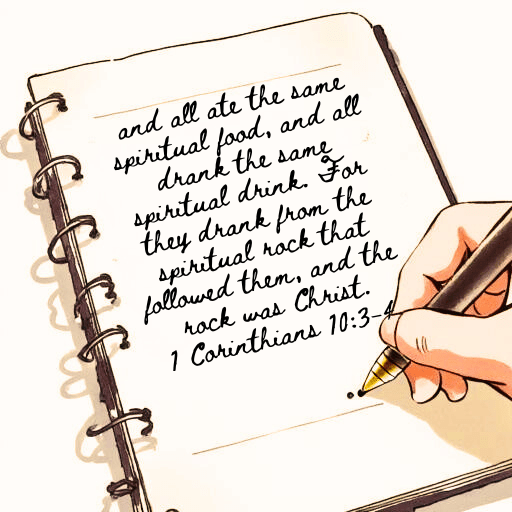 and all ate the same
spiritual food, and all
drank the same
spiritual drink. For
they drank from the
spiritual rock that
followed them, and the
rock was Christ.
1 Corinthians 10:3-4